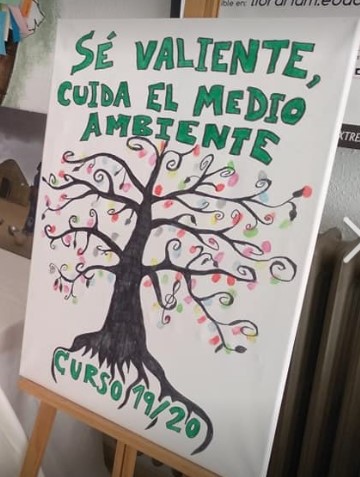 ible en:
SÉ VALIENTE,
CUIDA EL MEDIO
AMBIENTE
CURSO 19/20